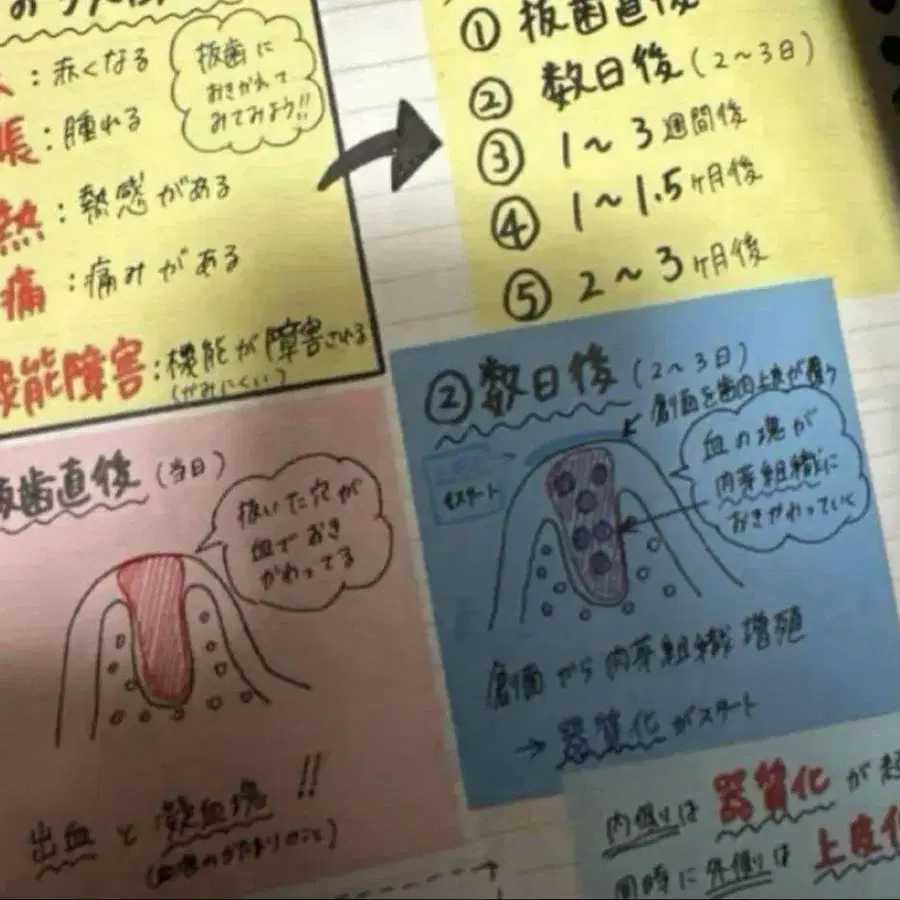 ：赤くなる
脹：腫れる
熱：熱感がある
痛：痛みがある
機能障害：機能が障害される
(かみにくい)
抜歯に
おきかえて
みてみよう!!
① 抜歯直後
② 数日後(2～3日)
③ 1～3週間後
④ 1～1.5ヶ月後
⑤ 2～3ヶ月後
抜歯直後(当日)
抜いた穴が
血でおき
かわってる
出血と凝血塊!!
(血液のかたまりのこと)
②数日後(2～3日)
創面を歯肉上皮が覆う
スタート
血の塊が
肉芽組織に
おきかわっていく
創面から肉芽組織増殖
→器質化がスタート
内側は器質化が起
同時に外側は上皮化